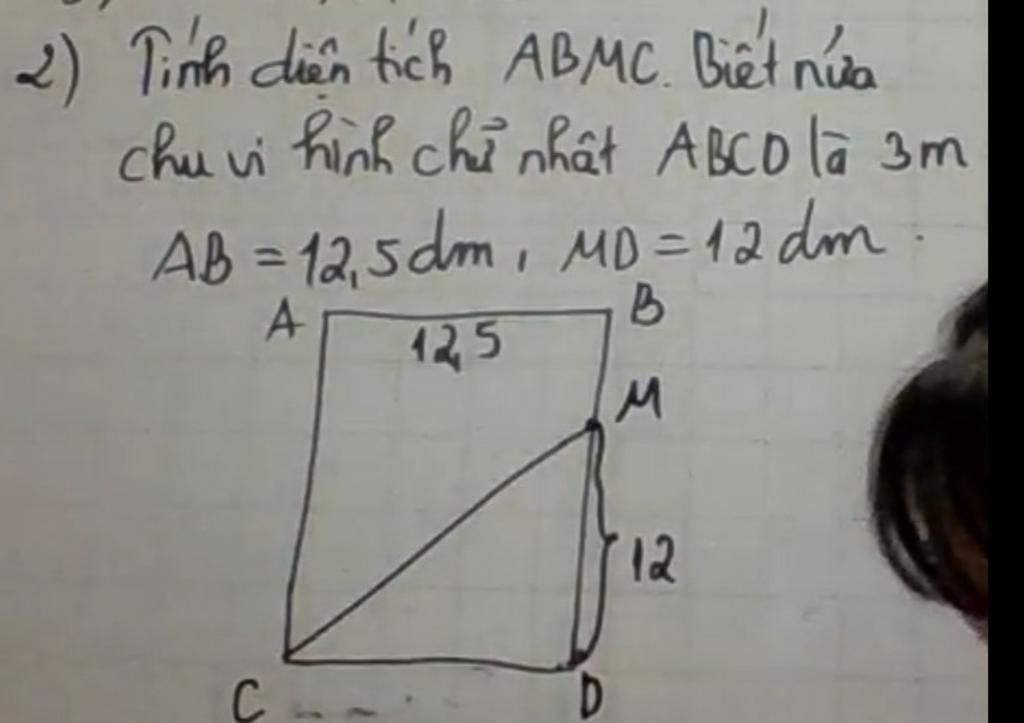 2) Tính diện tích ABMC. Biết nửa
chu vi hình chữ nhật ABCD là 3m
AB = 12,5dm, MD = 12 dm.
A B
12,5
M
12
C D